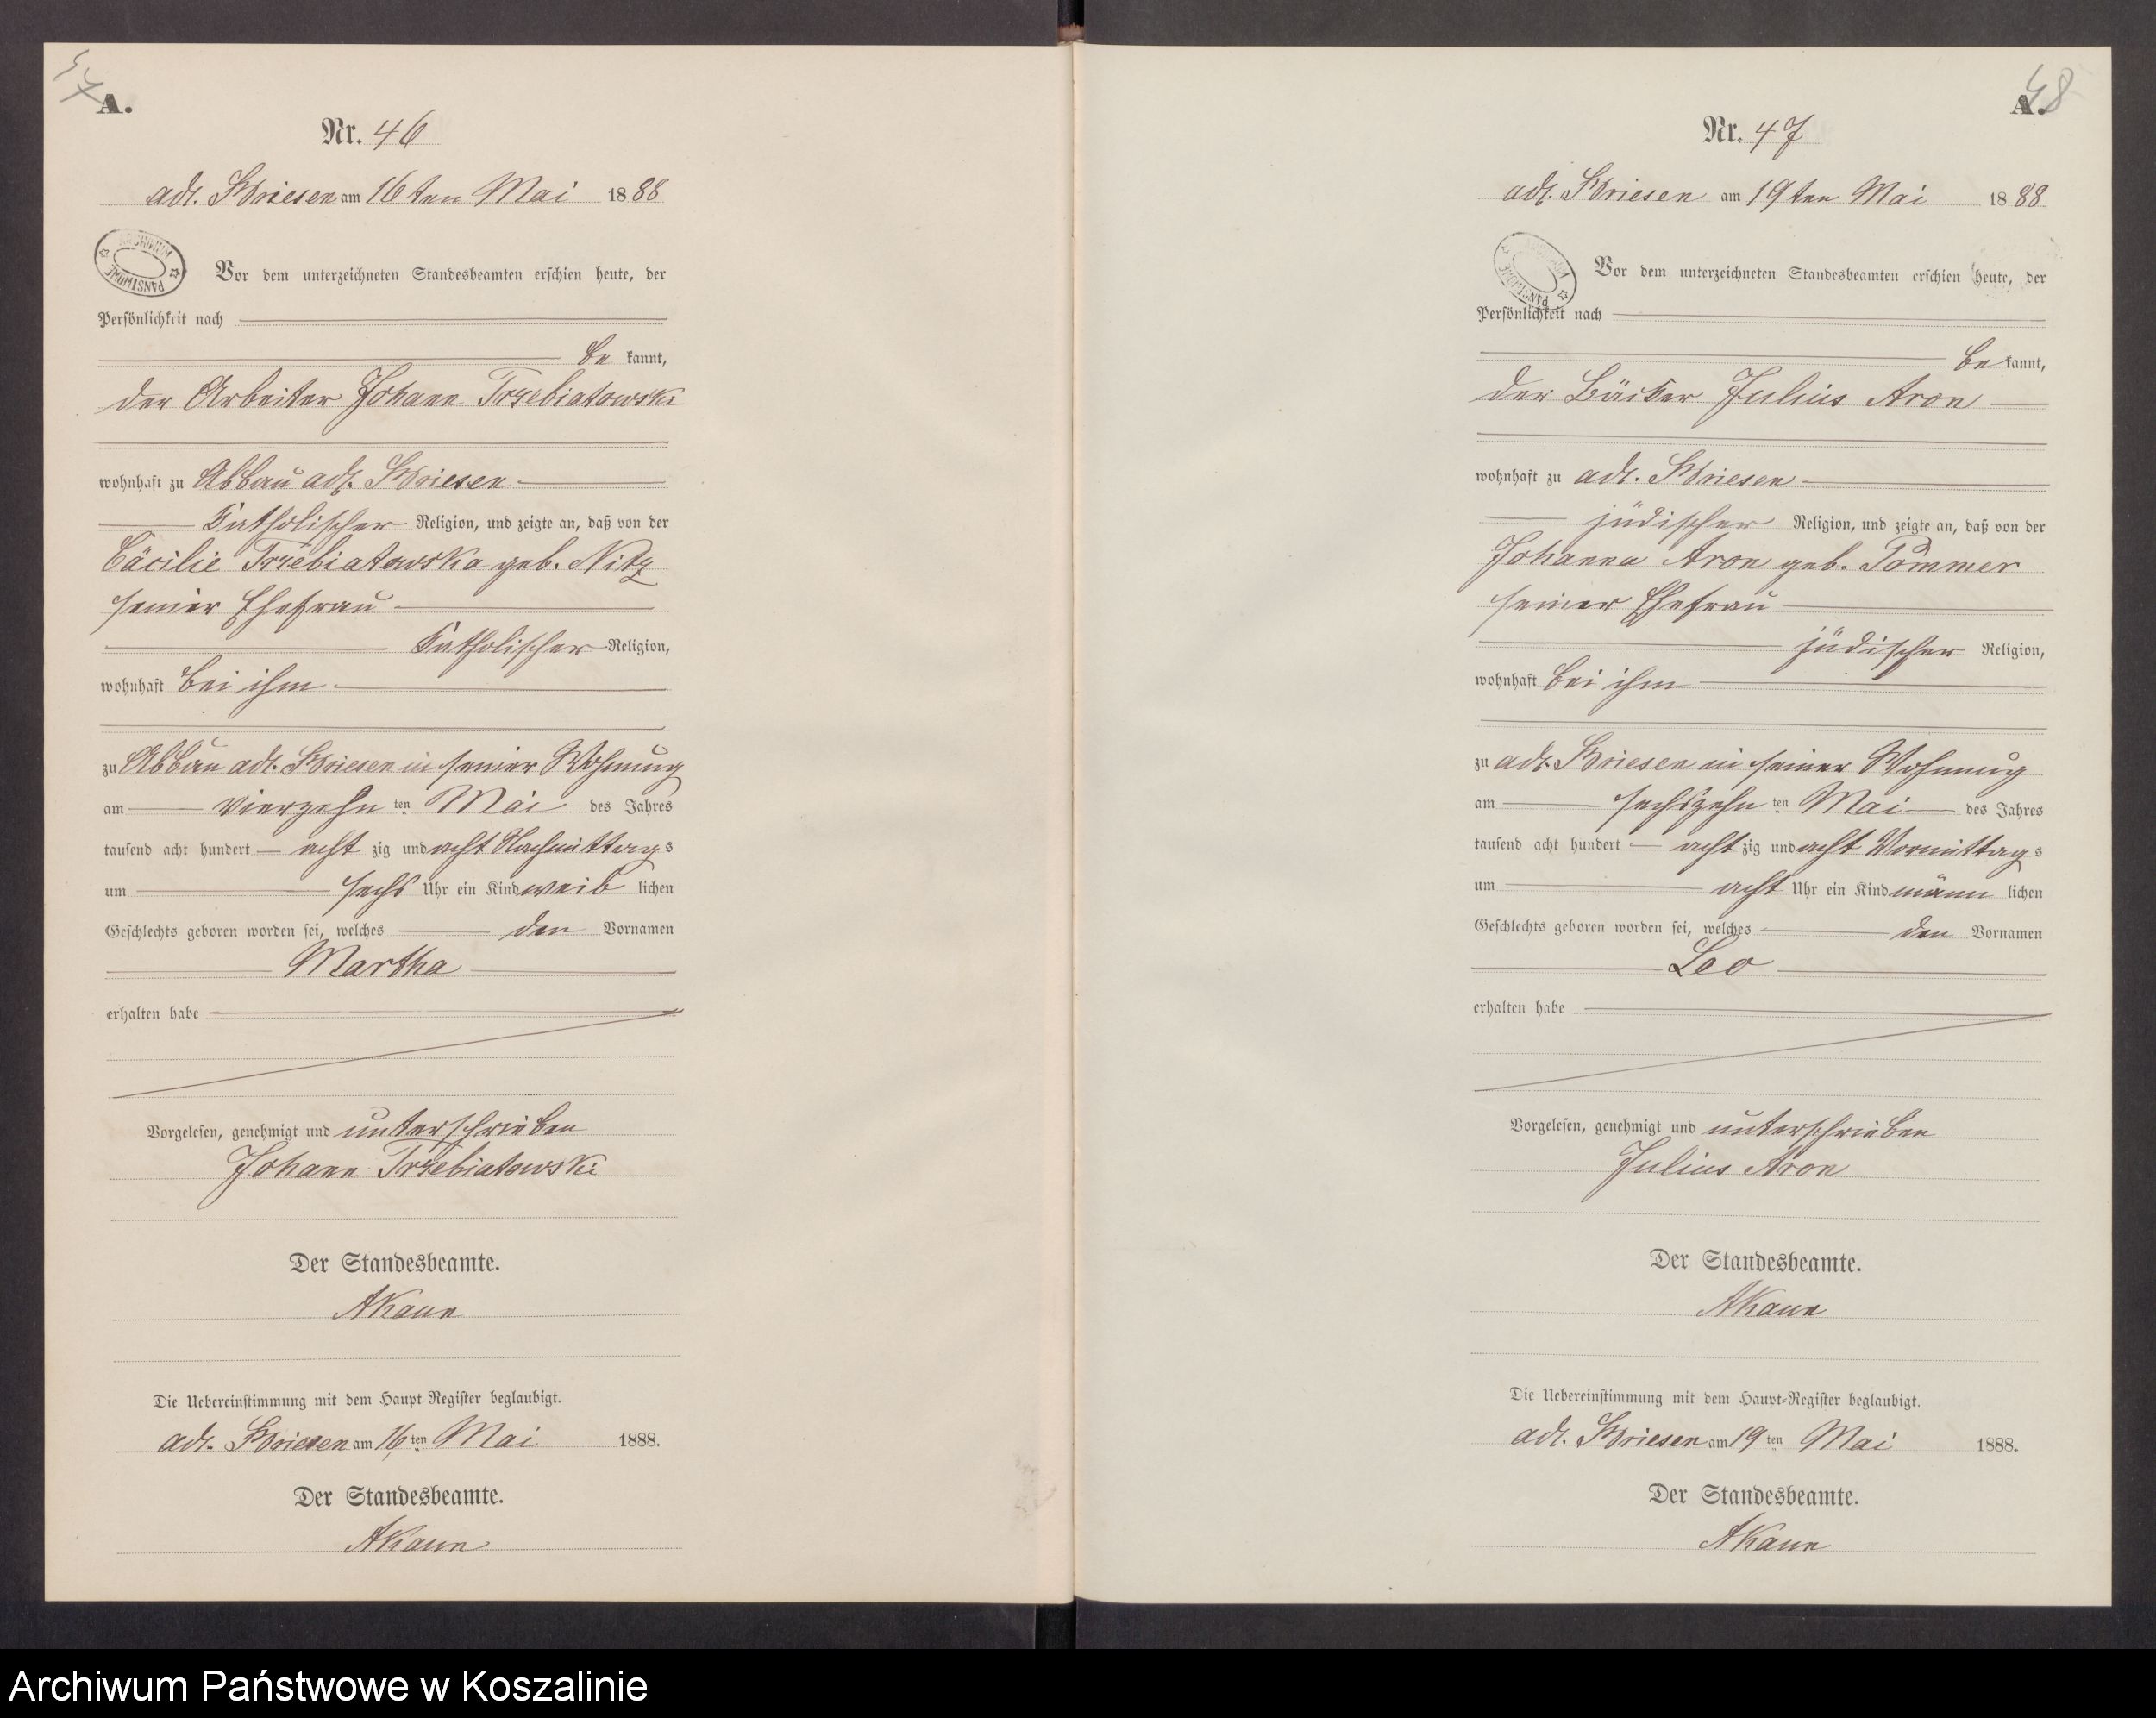 A.
Nr. 46
adl. Briesen am 16ten Mai 1888
ARCHIWUM PAŃSTWOWE
Vor dem unterzeichneten Standesbeamten erschien heute, der
Persönlichkeit nach
be kannt,
der Arbeiter Johann Trzebiatowski
wohnhaft zu Abbau adl. Briesen
katholischer Religion, und zeigte an, daß von der
Cäcilie Trzebiatowska geb. Nitz
seiner Ehefrau
katholischer Religion,
wohnhaft bei ihm
zu Abbau adl. Briesen in seiner Wohnung
am vierzehn ten Mai des Jahres
tausend acht hundert acht zig und acht Nachmittags
um sechs Uhr ein Kind weib lichen
Geschlechts geboren worden sei, welches den Vornamen
Martha
erhalten habe
Vorgelesen, genehmigt und unterschrieben
Johann Trzebiatowski
Der Standesbeamte.
AKaun
Die Uebereinstimmung mit dem Haupt Register beglaubigt.
adl. Briesen am 16ten Mai 1888.
Der Standesbeamte.
AKaun
48
A.
Nr. 47
adl. Briesen am 19ten Mai 1888
Vor dem unterzeichneten Standesbeamten erschien heute, der
Persönlichkeit nach
be kannt,
der Bäcker Julius Aron
wohnhaft zu adl. Briesen
jüdischer Religion, und zeigte an, daß von der
Johanna Aron geb. Pommer
seiner Ehefrau
jüdischer Religion,
wohnhaft bei ihm
zu adl. Briesen in seiner Wohnung
am sechszehn ten Mai des Jahres
tausend acht hundert acht zig und acht Vormittags
um acht Uhr ein Kind männ lichen
Geschlechts geboren worden sei, welches den Vornamen
Leo
erhalten habe
Vorgelesen, genehmigt und unterschrieben
Julius Aron
Der Standesbeamte.
AKaun
Die Uebereinstimmung mit dem Haupt-Register beglaubigt.
adl. Briesen am 19ten Mai 1888.
Der Standesbeamte.
AKaun
Archiwum Państwowe w Koszalinie